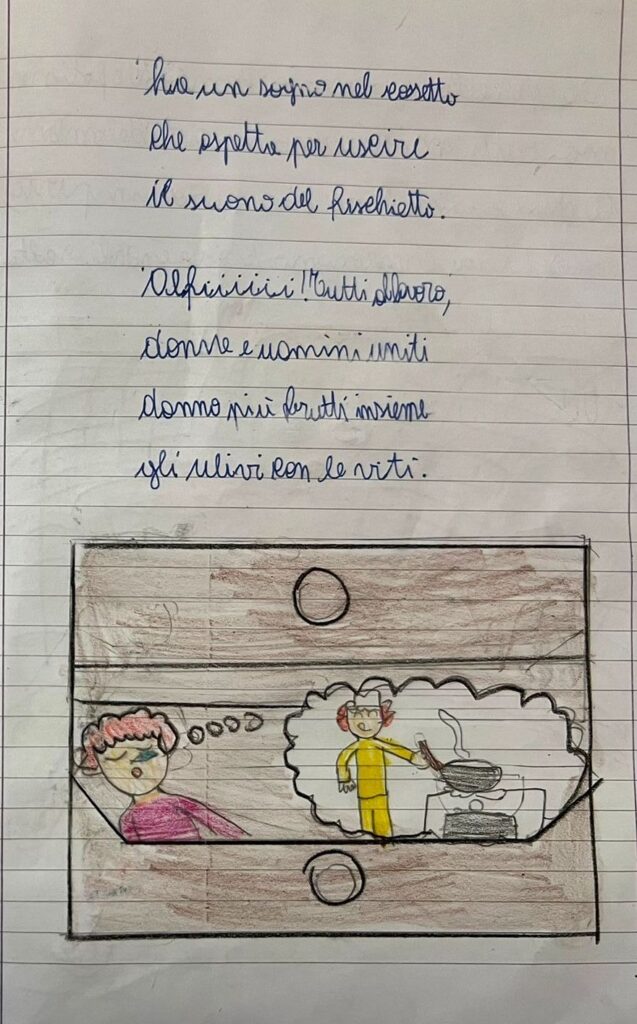 ha un sogno nel cassetto
che aspetta per uscire
il suono del fischietto.
Alfiiiiii! Tutti al lavoro,
donne e uomini uniti
danno più frutti insieme
gli ulivi con le viti.